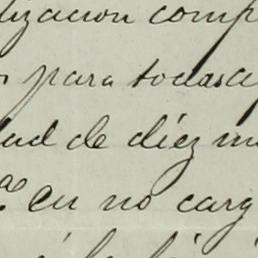 lización comp
para todas c
dad de diez m
en no carg